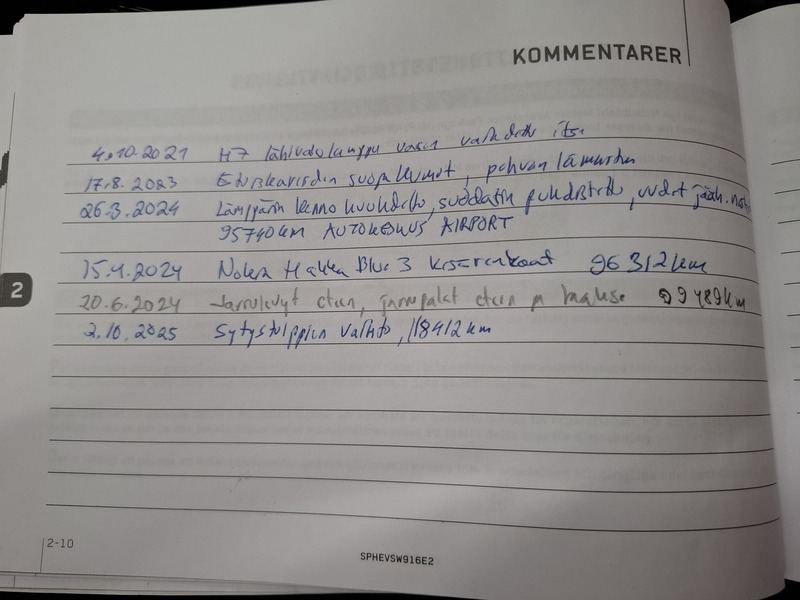 KOMMENTARER
4.10.2021 H7 lähivalolamppu vasen vaihdettu itse
17.8.2023 Etuiskarisdin suojakumit, pohvan lämmitin
26.3.2024 Lämppärin kenno huuhdeltu, suodatin puhdistettu, uudet jääh.
95740km AUTOKESKUS AIRPORT
15.4.2024 Nokia Hakka Blue 3 kesärenkaat 96312km
20.6.2024 Jarrulevyt eteen, jarrupalat eteen ja taakse 99489km
2.10.2025 Sytystulppien vaihto, 118412km
2
2-10
SPHEVSW916E2